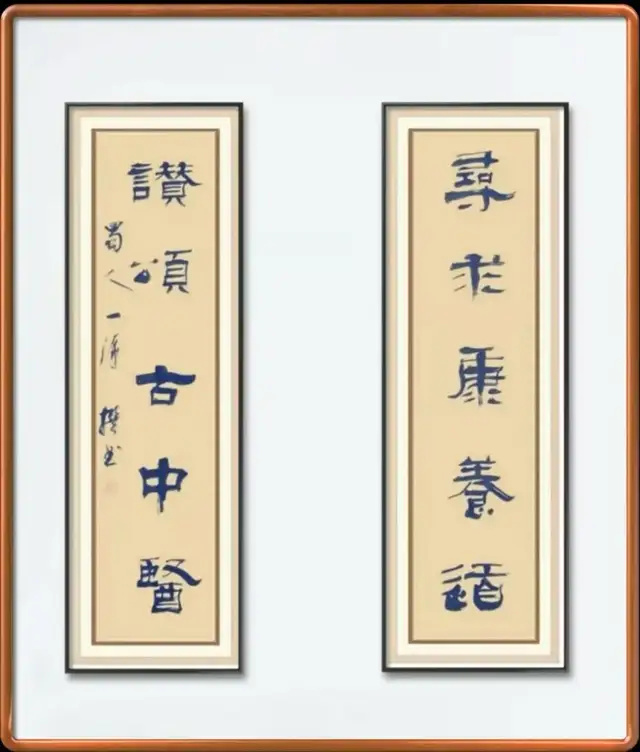 尋求康養道
讃頌古中醫
蜀人一清撰书